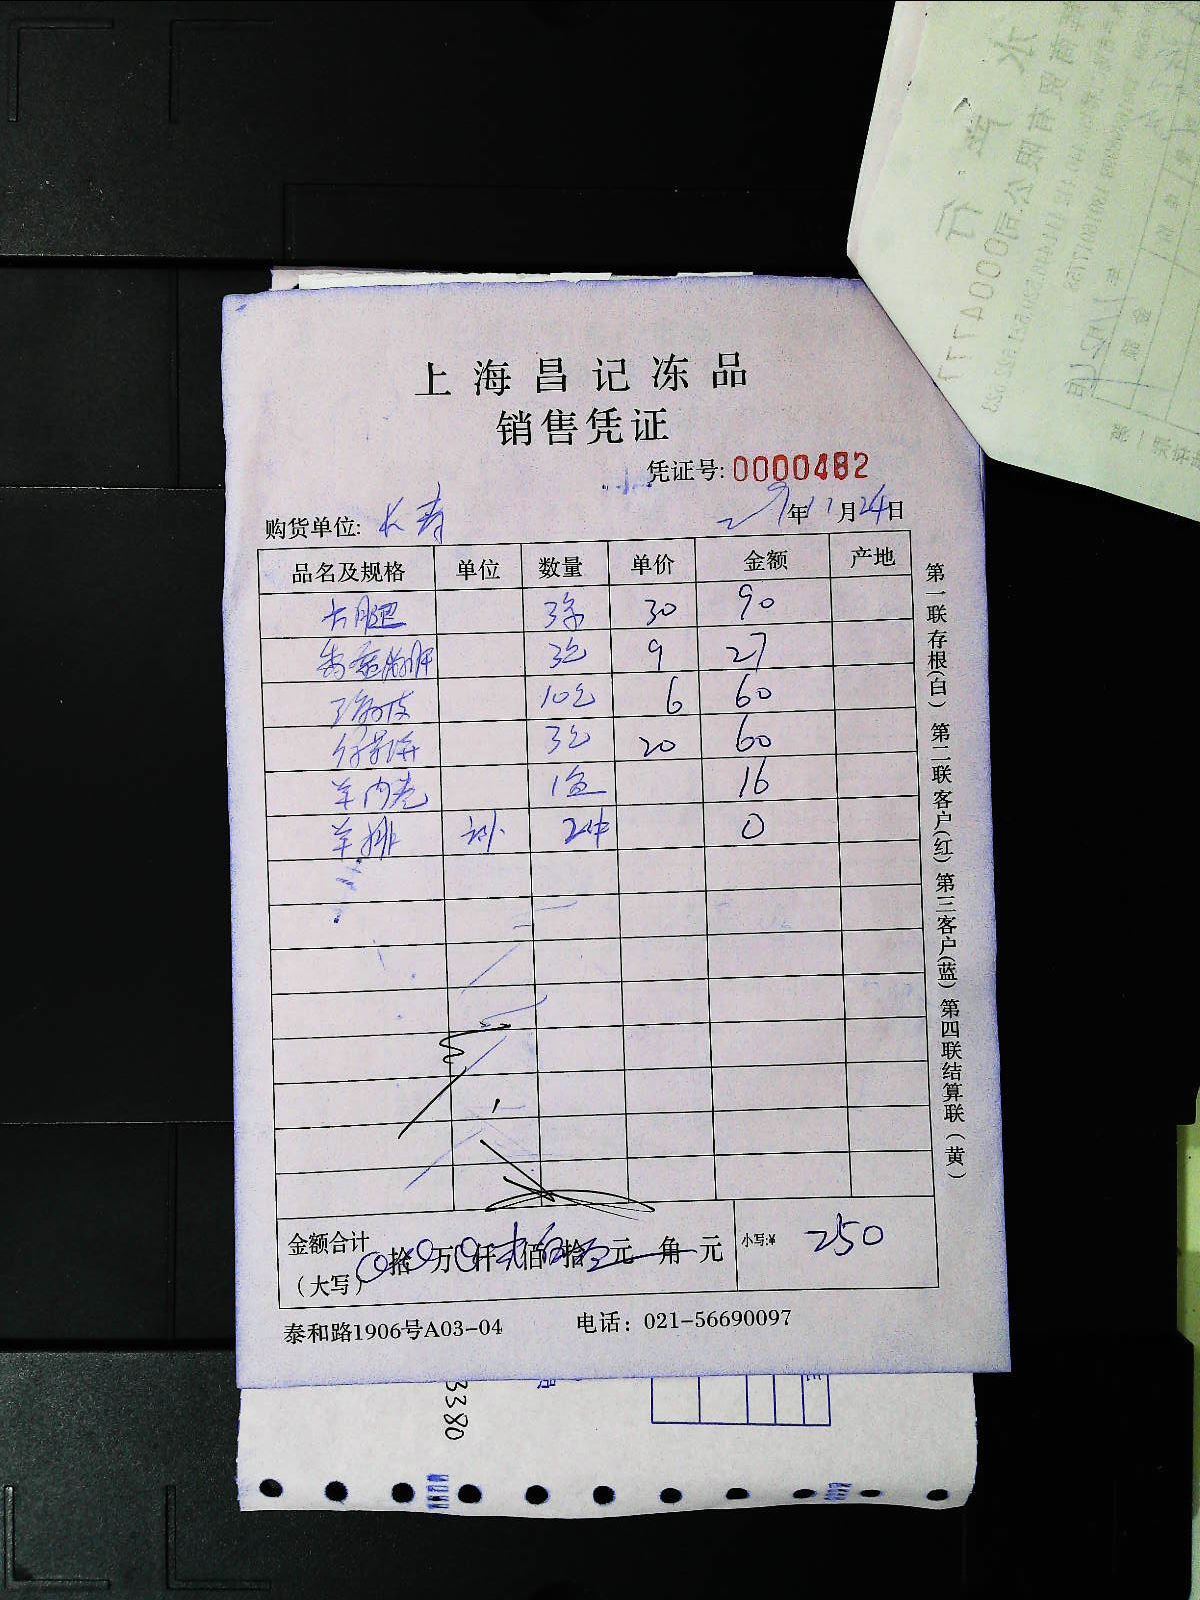 上海昌记冻品
销售凭证
凭证号: 0000482
购货单位: 长寿 年11月24日
品名及规格 单位 数量 单价 金额 产地
大腿 3条 30 90
3包 9 27
10包 6 60
3包 20 60
羊肉卷 1盒 16
羊排 补 2件 0
金额合计
(大写) 0拾0万0仟贰佰伍拾元角元 小写:¥ 250
泰和路1906号A03-04 电话: 021-56690097
第一联存根(白) 第二联客户(红) 第三客户(蓝) 第四联结算联(黄)
3380